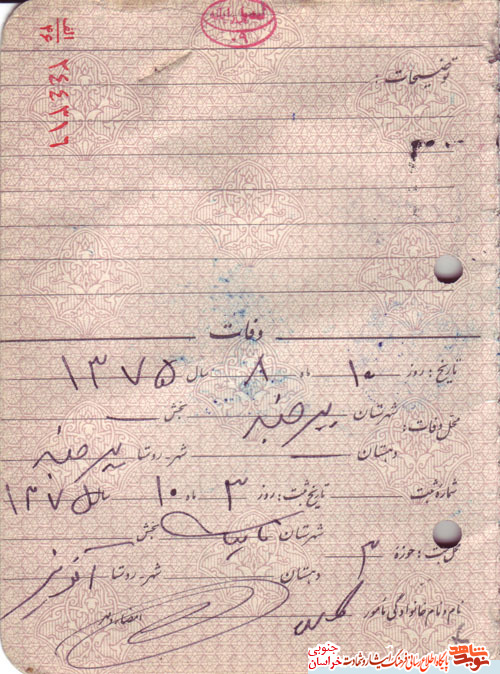 الف
۳۶
۲۴۴۳۱۶
۰۹
توضیحات:
وفات
تاریخ: روز ۱۰ ماه ۸ سال ۱۳۷۵
محل وفات: شهرستان بیرجند بخش
دهستان شهر- روستا بیرجند
شماره ثبت تاریخ ثبت: روز ۳ ماه ۱۰ سال ۱۳۷۵
محل ثبت: حوزه ۳ شهرستان قاینات بخش
دهستان شهر- روستا
نام و نام خانوادگی مأمور امضاء و مهر
نوید شاهد
پایگاه اطلاع رسانی فرهنگ ایثار و شهادت
خراسان جنوبی